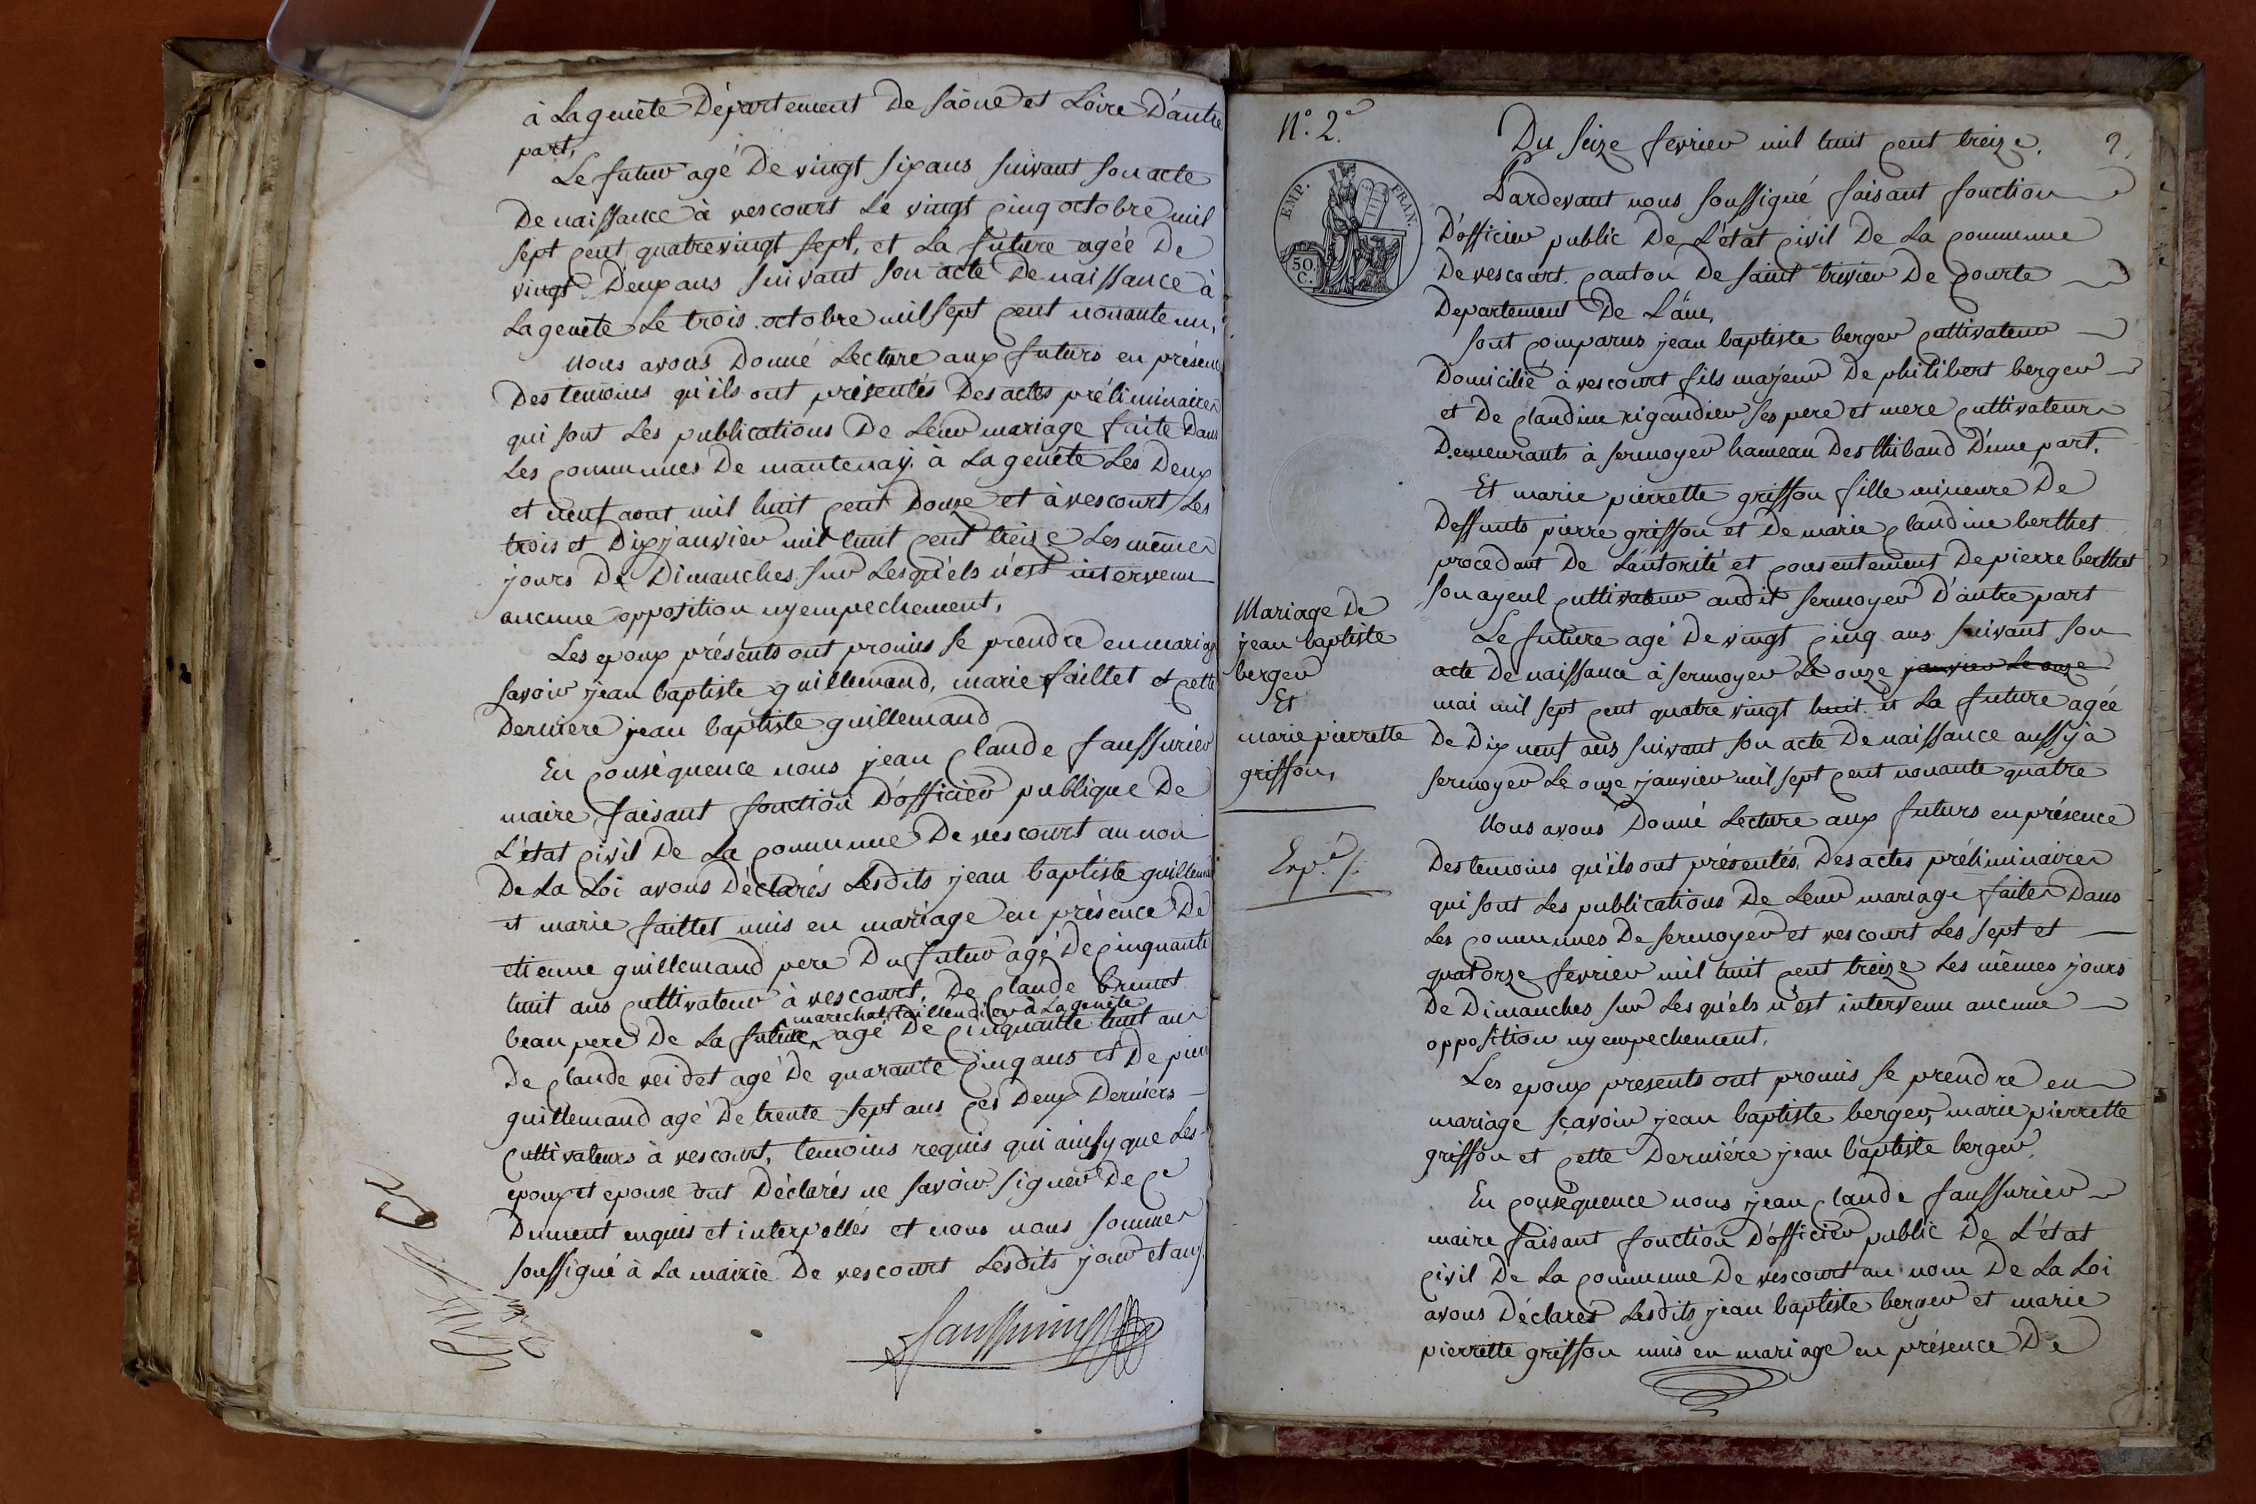 à Lagenète Département De saône et Loire D'autre
part,
Le futur agé De vingt six ans suivant son acte
De naissance à vescourt Le vingt cinq octobre mil
sept cent quatrevingt sept, et La future agée De
vingt Deux ans suivant son acte De naissance à
Lagenète Le trois octobre mil sept cent nonante un,
Nous avons Donné Lecture aux futurs en présence
Des temoins qu'ils ont présentés Des actes préliminaires
qui sont Les publications De Leur mariage faite Dans
Les communes De mantenay à Lagenète Les Deux
et neuf aout mil huit cent Douze et à vescourt Les
trois et Dix janvier mil huit cent treize Les mêmes
jours De Dimanches sur Lesquels n'est intervenu
aucune opposition ny empechement,
Les epoux présents ont promis se prendre en mariage
savoir jean baptiste guillemaud, marie faillet et cette
Derniere jean baptiste guillemaud
En conséquence nous jean claude faussurier
maire faisant fonction D'officier publique De
L'état civil De La commune De vescourt au nom
De La Loi avons Déclarés Lesdits jean baptiste guillemaud
et marie faillet unis en mariage en présence De
etienne guillemaud pere Du futur agé De cinquante
huit ans cultivateur à vescourt, De claude brunet
marechal taillandier à Lagenète
beau pere De La future agé De cinquante huit ans
De claude veidet agé De quarante cinq ans et De pierre
guillemaud agé De trente sept ans ces Deux Derniers
cultivateurs à vescourt, temoins requis qui ainsy que Les
epoux et epouse ont Déclarés ne savoir signer De ce
Dument enquis et interpellés et nous nous sommes
soussigné à La mairie De vescourt Lesdits jour et an,
N.º 2.e
EMP. FRAN.
50. C.
Mariage De
jean baptiste
berger
Et
marie pierrette
griffon,
Exp.é
Du seize fevrier mil huit cent treize. 2.
Pardevant nous soussigné faisant fonction
D'officier public De L'état civil De La commune
De vescourt canton De saint trivier De courte
Departement De L'ain,
sont comparus jean baptiste berger cultivateur
Domicilié à vescourt fils majeur De philibert berger
et De claudine rigaudier ses pere et mere cultivateurs
Demeurants à sermoyer hameau Des thibaud D'une part,
Et marie pierrette griffon fille mineure De
Deffunts pierre griffon et De marie claudine berthet
procedant De L'autorité et consentement De pierre berthet
son ayeul cultivateur audit sermoyer D'autre part
Le future agé De vingt cinq ans suivant son
acte De naissance à sermoyer Le onze janvier Le onze
mai mil sept cent quatre vingt huit et La future agée
De Dix neuf ans suivant son acte De naissance aussy à
sermoyer Le onze janvier mil sept cent nonante quatre
Nous avons Donné Lecture aux futurs en présence
Des temoins qu'ils ont présentés, Des actes préliminaires
qui sont Les publications De Leur mariage faites Dans
Les communes De sermoyer et vescourt Les sept et
quatorze fevrier mil huit cent treize Les mêmes jours
De Dimanches sur Lesquels n'est intervenu aucune
opposition ny empechement,
Les epoux presents ont promis se prendre en
mariage sçavoir jean baptiste berger, marie pierrette
griffon et cette Derniére jean baptiste berger,
En conséquence nous jean claude faussurier
maire faisant fonction D'officier public De L'état
civil De La commune De vescourt au nom De La Loi
avons Déclarés Lesdits jean baptiste berger et marie
pierrette griffon unis en mariage en présence De